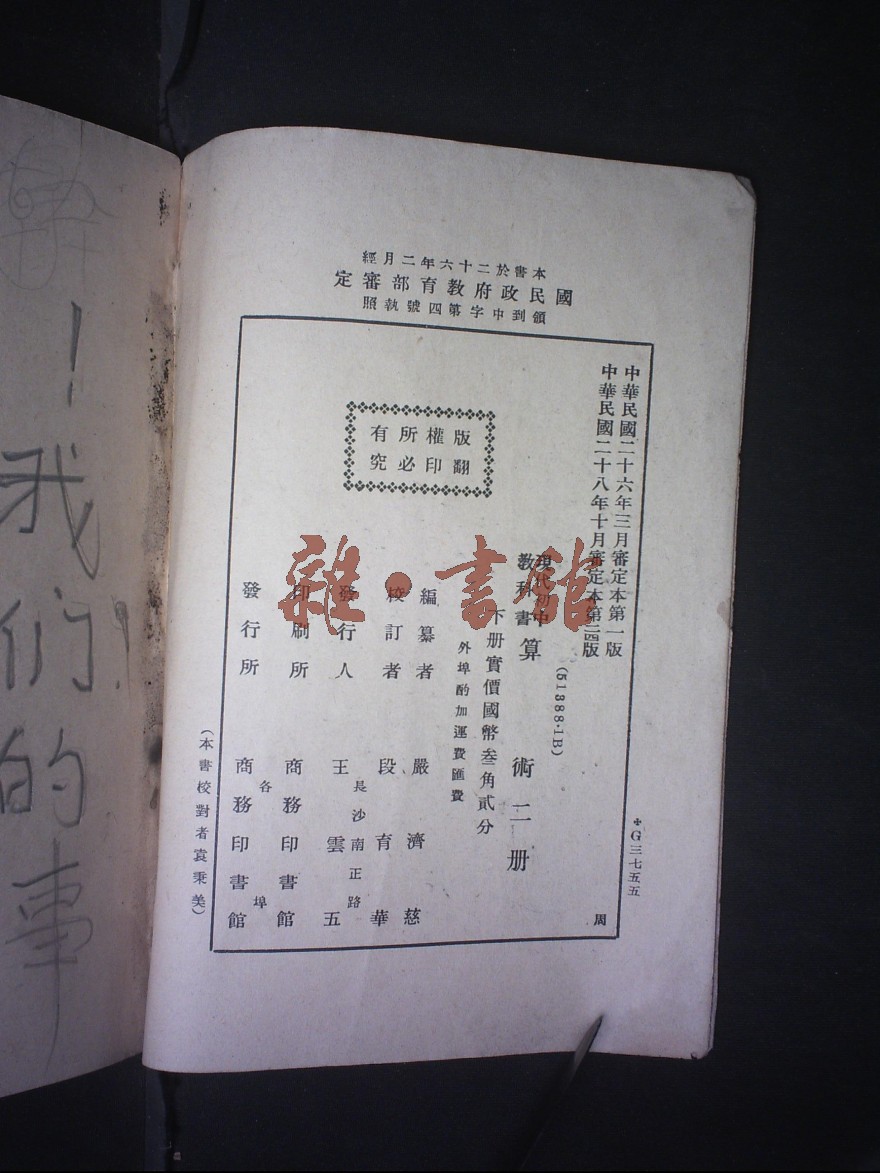 本書於二十六年二月經
國民政府教育部審定
領到中字第四號執照
中華民國二十六年三月審定本第一版
中華民國二十八年十月審定本第二四版
版權所有
翻印必究
(51388·1B)
現代初中
教科書
算術二册
下册實價國幣叁角貳分
外埠酌加運費匯費
編纂者 嚴濟慈
校訂者 段育華
長沙南正路
發行人 王雲五
印刷所 商務印書館
各埠
發行所 商務印書館
(本書校對者袁秉美)
✠G三七五五
周
雜·書館
！我們的事